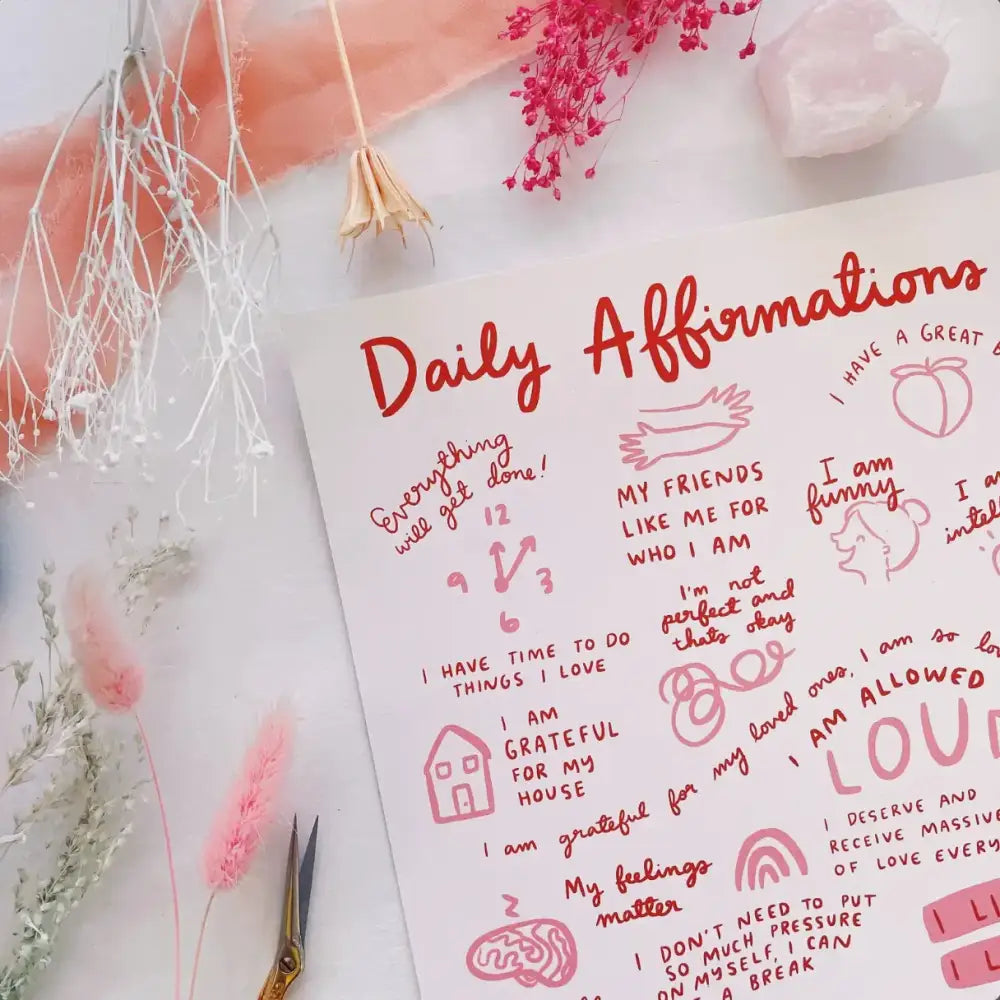 Daily Affirmations
I HAVE A GREAT
Everything
will get done!
12
9
3
6
MY FRIENDS
LIKE ME FOR
WHO I AM
I am
funny
I
I'm not
perfect and
thats okay
I HAVE TIME TO DO
THINGS I LOVE
I AM
GRATEFUL
FOR MY
HOUSE
I am grateful for my loved ones, I am so
I AM ALLOWED
LOU
I DESERVE AND
RECEIVE MASSIVE
OF LOVE
My feelings
matter
I DON'T NEED TO PUT
SO MUCH PRESSURE
ON MYSELF, I CAN
A BREAK
I
I